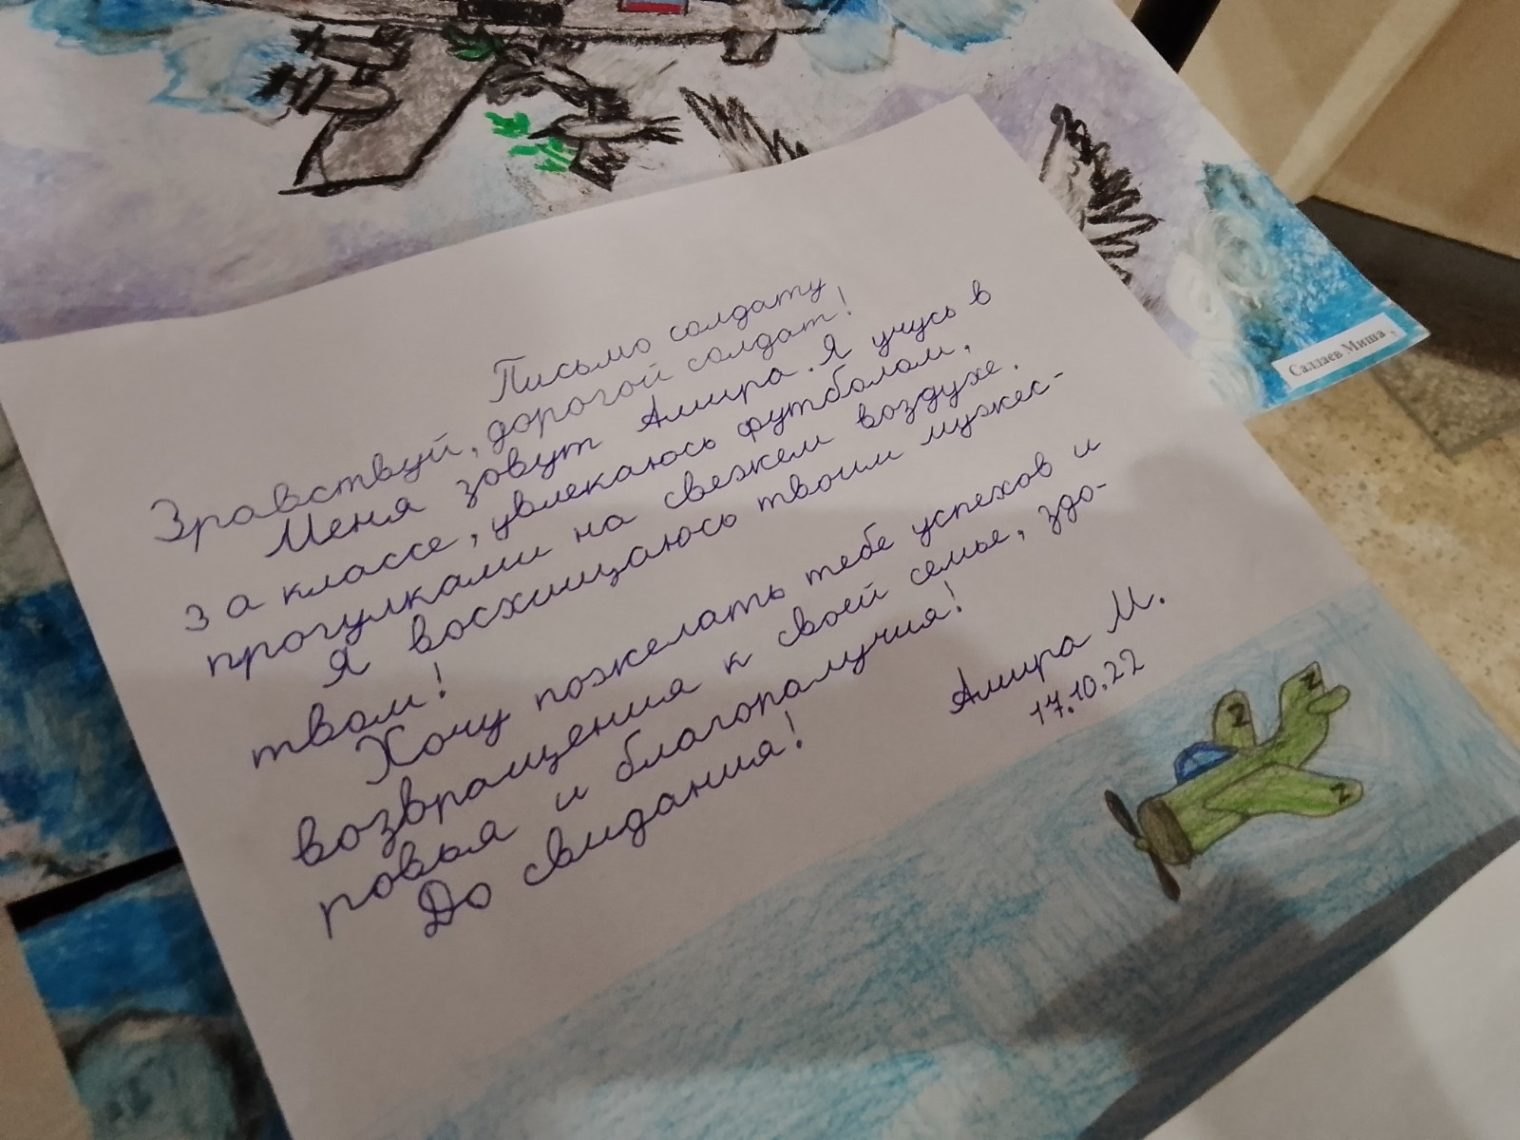 Письмо солдату
Зравствуй, дорогой солдат!
Меня зовут Амира. Я учусь в
3 а классе, увлекаюсь футболом,
прогулками на свежем воздухе.
Я восхищаюсь твоим мужес-
твом!
Хочу пожелать тебе успехов и
возвращения к своей семье, здо-
ровья и благополучия!
До свидания!
Амира М.
17.10.22
Z
Z
Z
Саллаев Миша